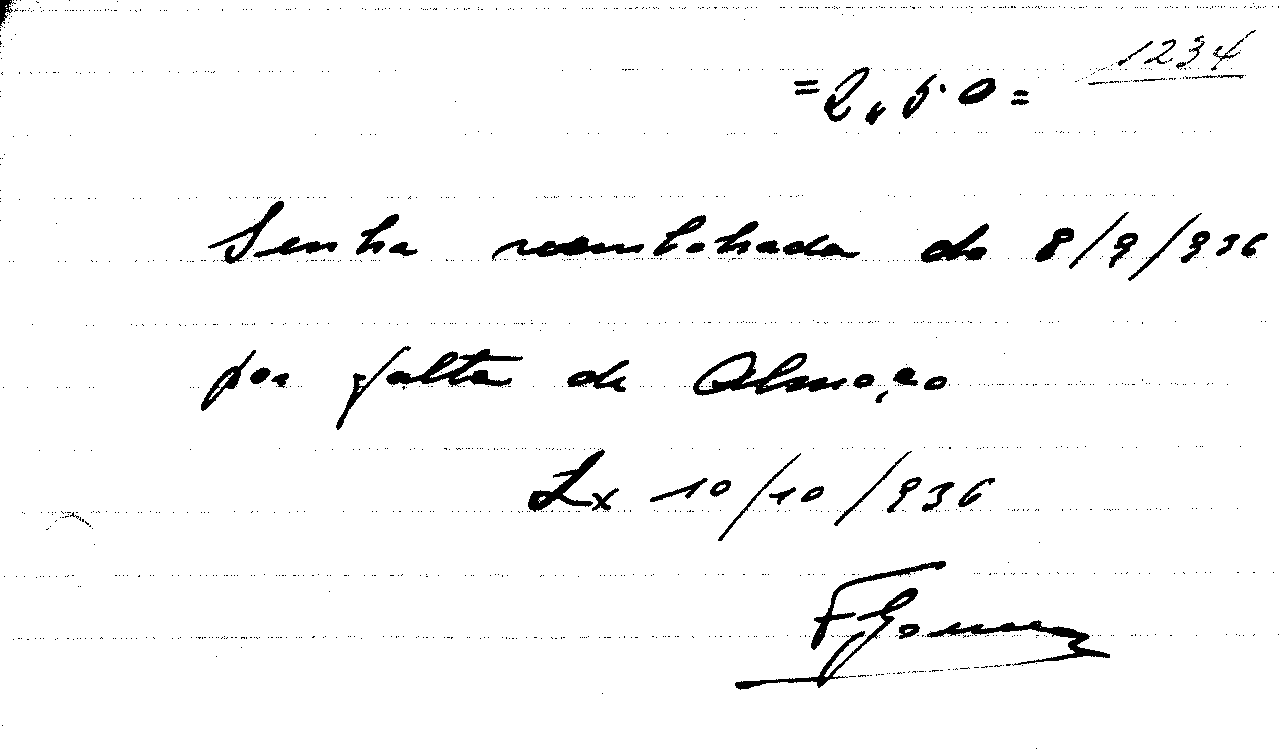 1234
=2,50=
Senha reembolsada do 8/9/936
por falta de Almoço
Lx 10/10/936
FGomes